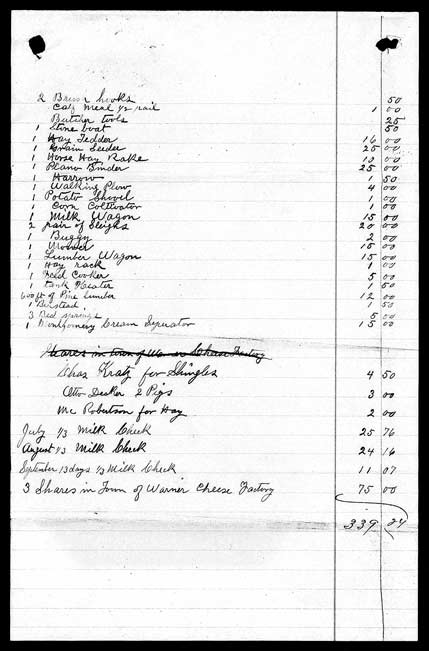 2 Brush hooks 50
Calf meal 1/2 pail 1 00
Butcher tools 25
1 Stone boat 50
1 Hay Tedder 16 00
1 Grain Seeder 25 00
1 Horse Hay Rake 10 00
1 Plano Binder 25 00
1 Harrow 1 50
1 Walking Plow 4 00
1 Potato Shovel 1 00
1 Corn Coltivator 1 00
1 Milk Wagon 15 00
2 pair of Sleighs 20 00
1 Buggy 2 00
1 Mower 15 00
1 Lumber Wagon 15 00
1 Hay rack 1 00
1 Feed Cooker 5 00
1 Tank Heater 1 50
600 ft of Pine Lumber 12 00
1 Bedstead 1 50
3 Bed springs 5 00
1 Montgomery Cream Seperator 15 00
Shares in Town of Warner Cheese Factory
Chas Kratz for Shingles 4 50
Otto Decker 2 Pigs 3 00
Mc Robertson for Hay 2 00
July 1/3 Milk Check 25 76
August 1/3 Milk Check 24 16
September 13 days 1/3 Milk Check 11 07
3 Shares in Town of Warner Cheese Factory 75 00
339 24